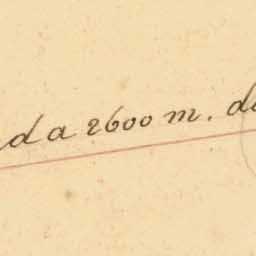 d a 2600 m. d